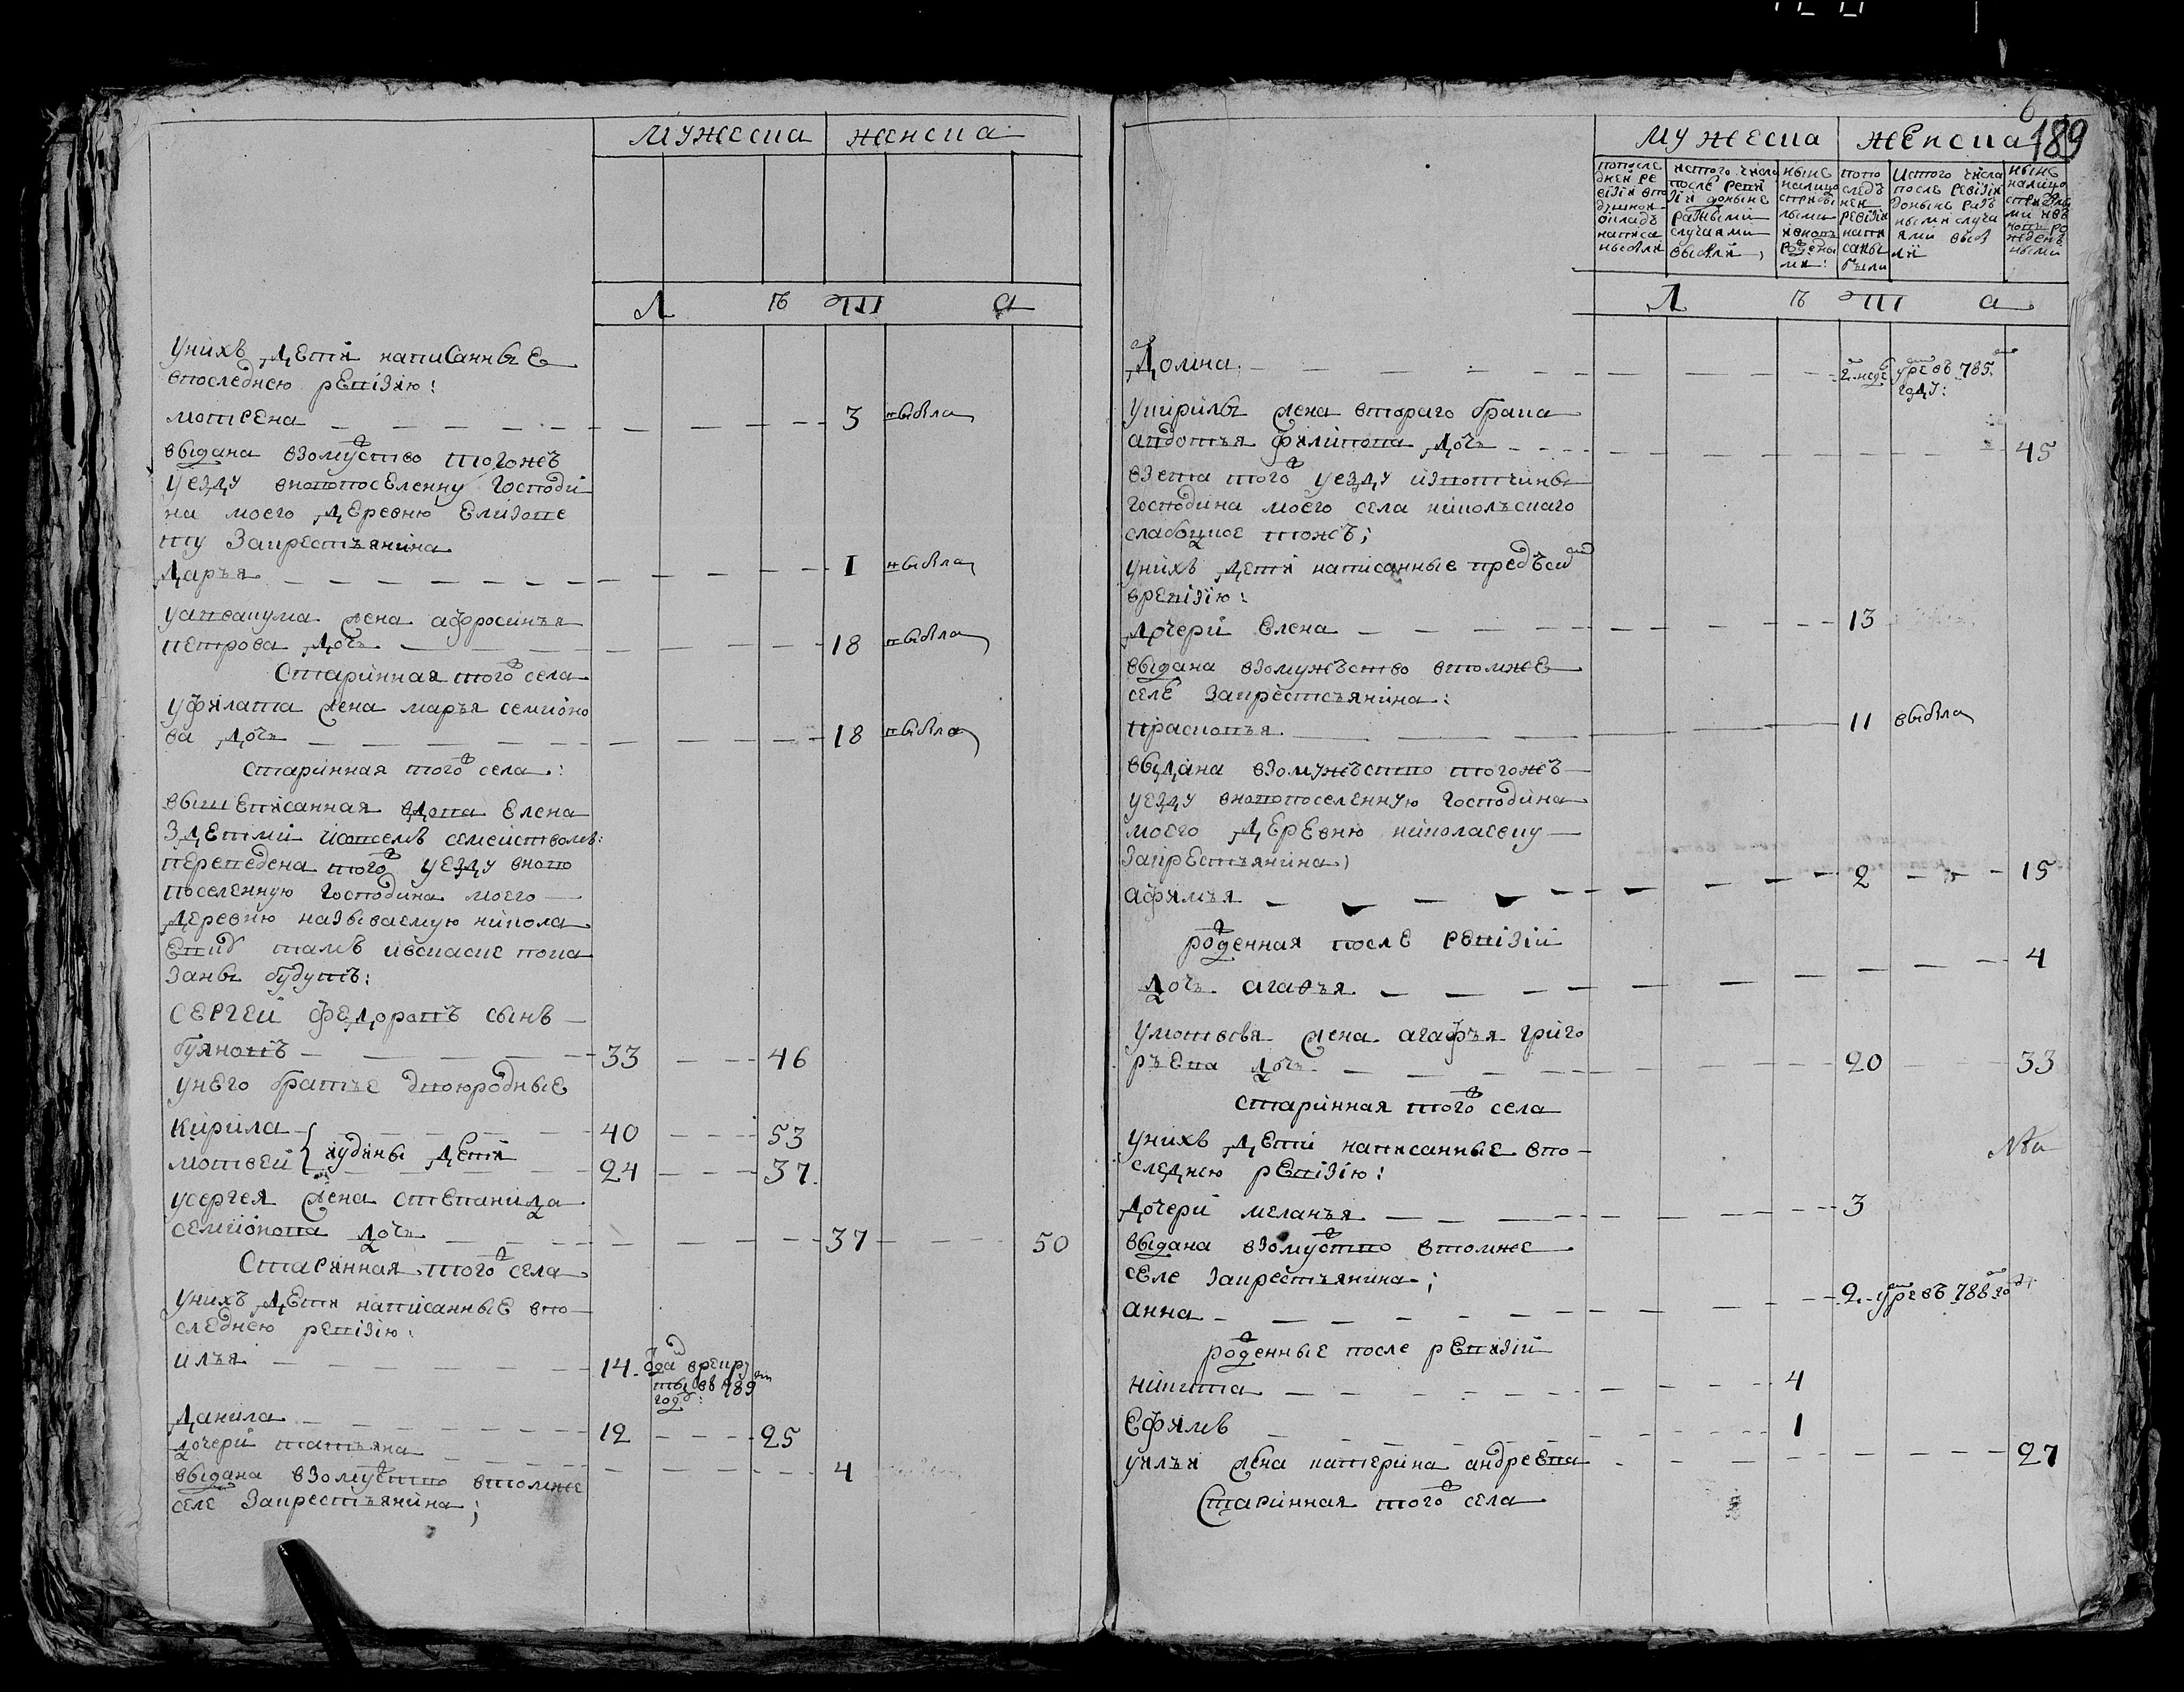 мужеска женска
Л ѣ т а
унихъ дети написанные
впоследнею ревизию:
мотрена 3 выбыла
выдана взомуство тогожъ
уезду вновопоселенну господи
на моего деревню Елизаве
тту закрестьянина
Дарья 1 выбыла
уаввакума жена афросинья
петрова дочь 18 выбыла
Старинная того села
уфилата жена марья семионо
ва дочь 18 выбыла
старинная того села:
вышеписанная вдова Елена
здетми ивсемъ семеиствомъ:
переведена того уезду вново
поселенную господина моего
деревню называемую никола
евку тамъ ивсказке пока
заны будутъ:
СЕРГЕЙ федоровъ сынъ
буяновъ 33 46
унего братье двоюродные
кирила 40 53
иудины дети
мотвей 24 37
усергея жена степанида
семионова дочь 37 50
Старинная того села
унихъ дети написанные впо
следнею ревизию:
илья 14 отдан врекру
ты въ 789
годъ:
данила 12 25
дочери татьяна 4
выдана взомуство втомже
селе закрестьянина;
6
189
мужеска женска
попосле
дней ре
визии впо
душной
окладъ
написа
ны были
истого числа
после реви
зии доныне
разными
случаями
выбыли,
ныне
налицо
сприбы
лыми
ивновь
рожденны
ми:
попо
следъ
ней
ревизии
напи
саны
были
истого числа
послѣ ревизии
донынѣ разъ
ными случа
ями выбы
ли
нынѣ
налицо
сприбылы
ми ивъ
новь ро
жденъ
ными
Л ѣ т а
Домна 2 неде умре въ 785
году:
укирилы жена втораго брака
авдотья филипова дочь 45
взета того уезду извотчины
господина моего села никольскаго
слабоцкое тожъ;
унихъ дети написанные предъсид
вревизию:
дочери Елена 13
выдана взомужъство втомже
селе закрестсьянина:
прасковья 11 выбыла
выдана взомужъство тогожъ
уезду вновопоселенную господина
моего деревню николаевку
закрестьянина,
афимья 2 15
рожденная после ревизии
дочь агафья 4
умотвея жена агафья григо
рьева дочь 20 33
старинная того села
унихъ дети написанные впо
следнею ревизию:
дочери меланья 3
выдана взомуство втомже
селе закрестьянина;
анна 2 умре въ 788 году
рожденные после ревизии
никита 4
Ефимъ 1
уильи жена катерина андреева 27
Старинная того села